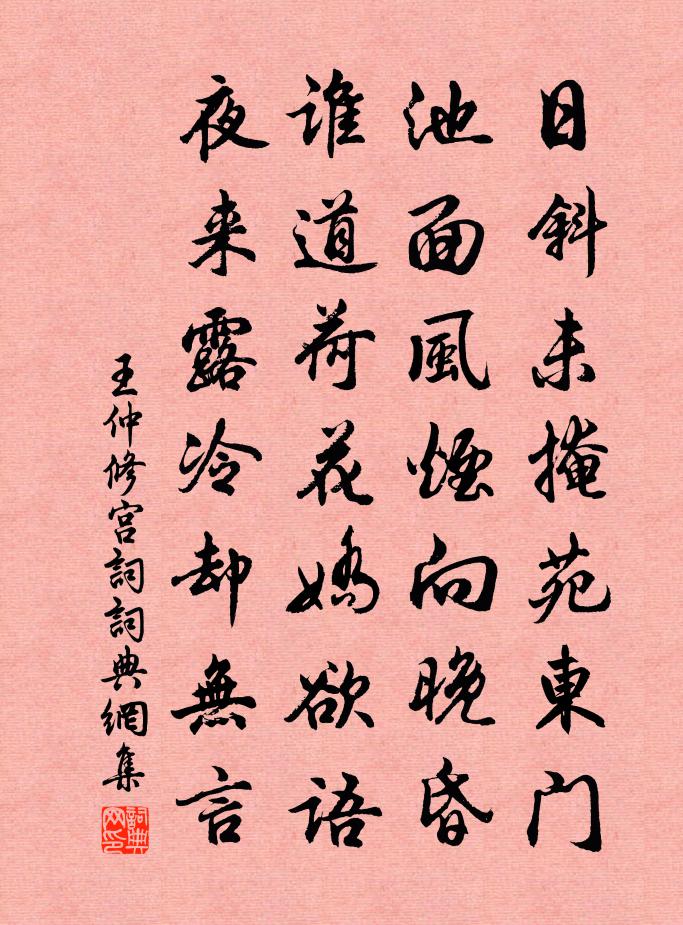 日斜未掩苑東门
池面風煙向晚昏
谁道荷花嬌欲语
夜来露冷却無言
王仲修宫詞詞典網集
詞典网印